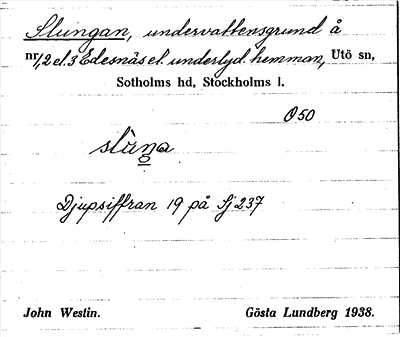 Slungan, undervattensgrund å
nr 1,2 el. 3 Edesnäs el. underlyd. hemman, Utö sn,
Sotholms hd, Stockholms l.
Ö 50
Djupsiffran 19 på Sj 237
John Westin. Gösta Lundberg 1938.